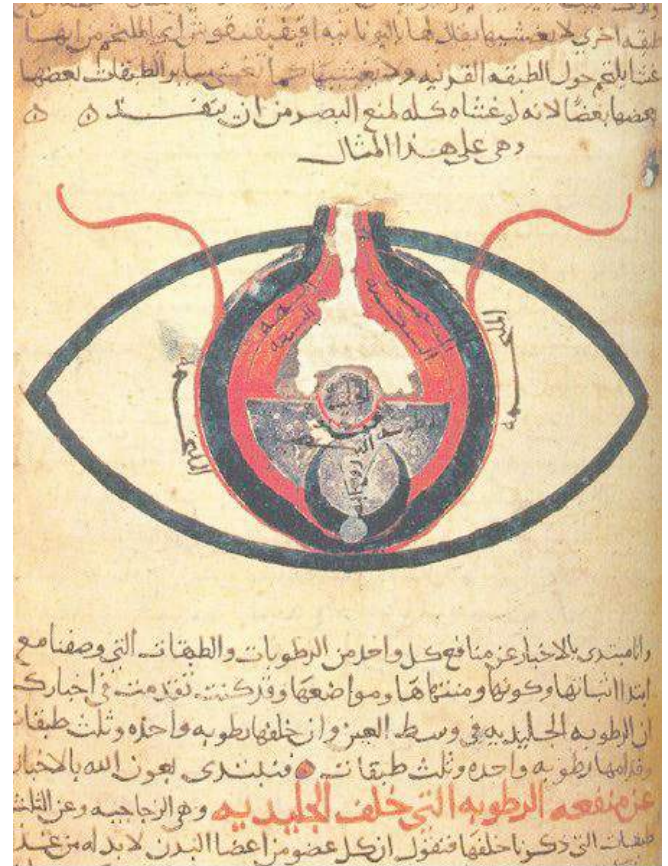 طبقه اخرى لا يغشيها يقال لها باليونانيه افيفيقوس اى الملتحم من انها
غشا يلتحم حول الطبقه القرنيه ولا يغشيها كما يغشى ساير الطبقات بعضها
بعضها بعضا لانه لو غشاه كله لمنع البصر من ان ينفذ ه ه
وهى على هذا المثال
الملتحمه
الملتحمه
الجليديه
وانا مبتدى بالاخبار عن منافع كل واحد من الرطوبات والطبقات التى وصفنا مع
ابتدا اثباتها وكونها ومنتهاها ومواضعها وقد كنت تقدمت فى اخبارك
ان الرطوبه الجليديه فى وسط العين وان خلفها رطوبه واحده وثلث طبقات
وقدامها رطوبه واحده وثلث طبقات فنبتدى بعون الله بالاخبار
عن منفعه الرطوبه التى خلف الجليديه وهى الزجاجيه وعن الثلث
طبقات التى ذكرنا خلفها فنقول ان كل عضو من اعضا البدن لا بد له من غذا